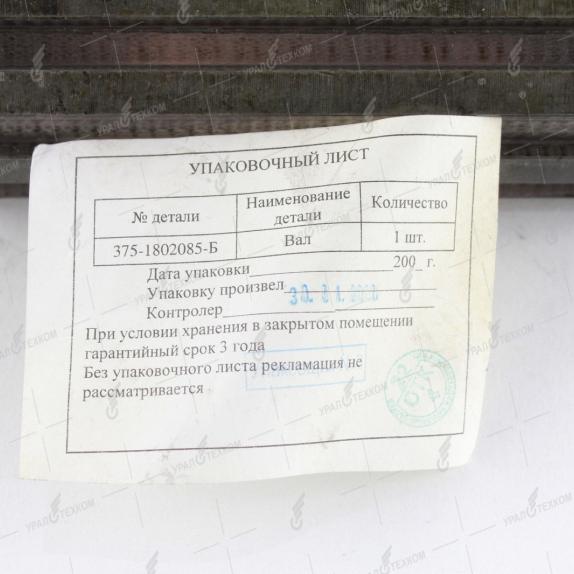 УПАКОВОЧНЫЙ ЛИСТ
№ детали Наименование детали Количество
375-1802085-Б Вал 1 шт.
Дата упаковки 200_ г.
Упаковку произвел
Контролер
При условии хранения в закрытом помещении
гарантийный срок 3 года
Без упаковочного листа рекламация не
рассматривается
УРАЛТЕХКОМ